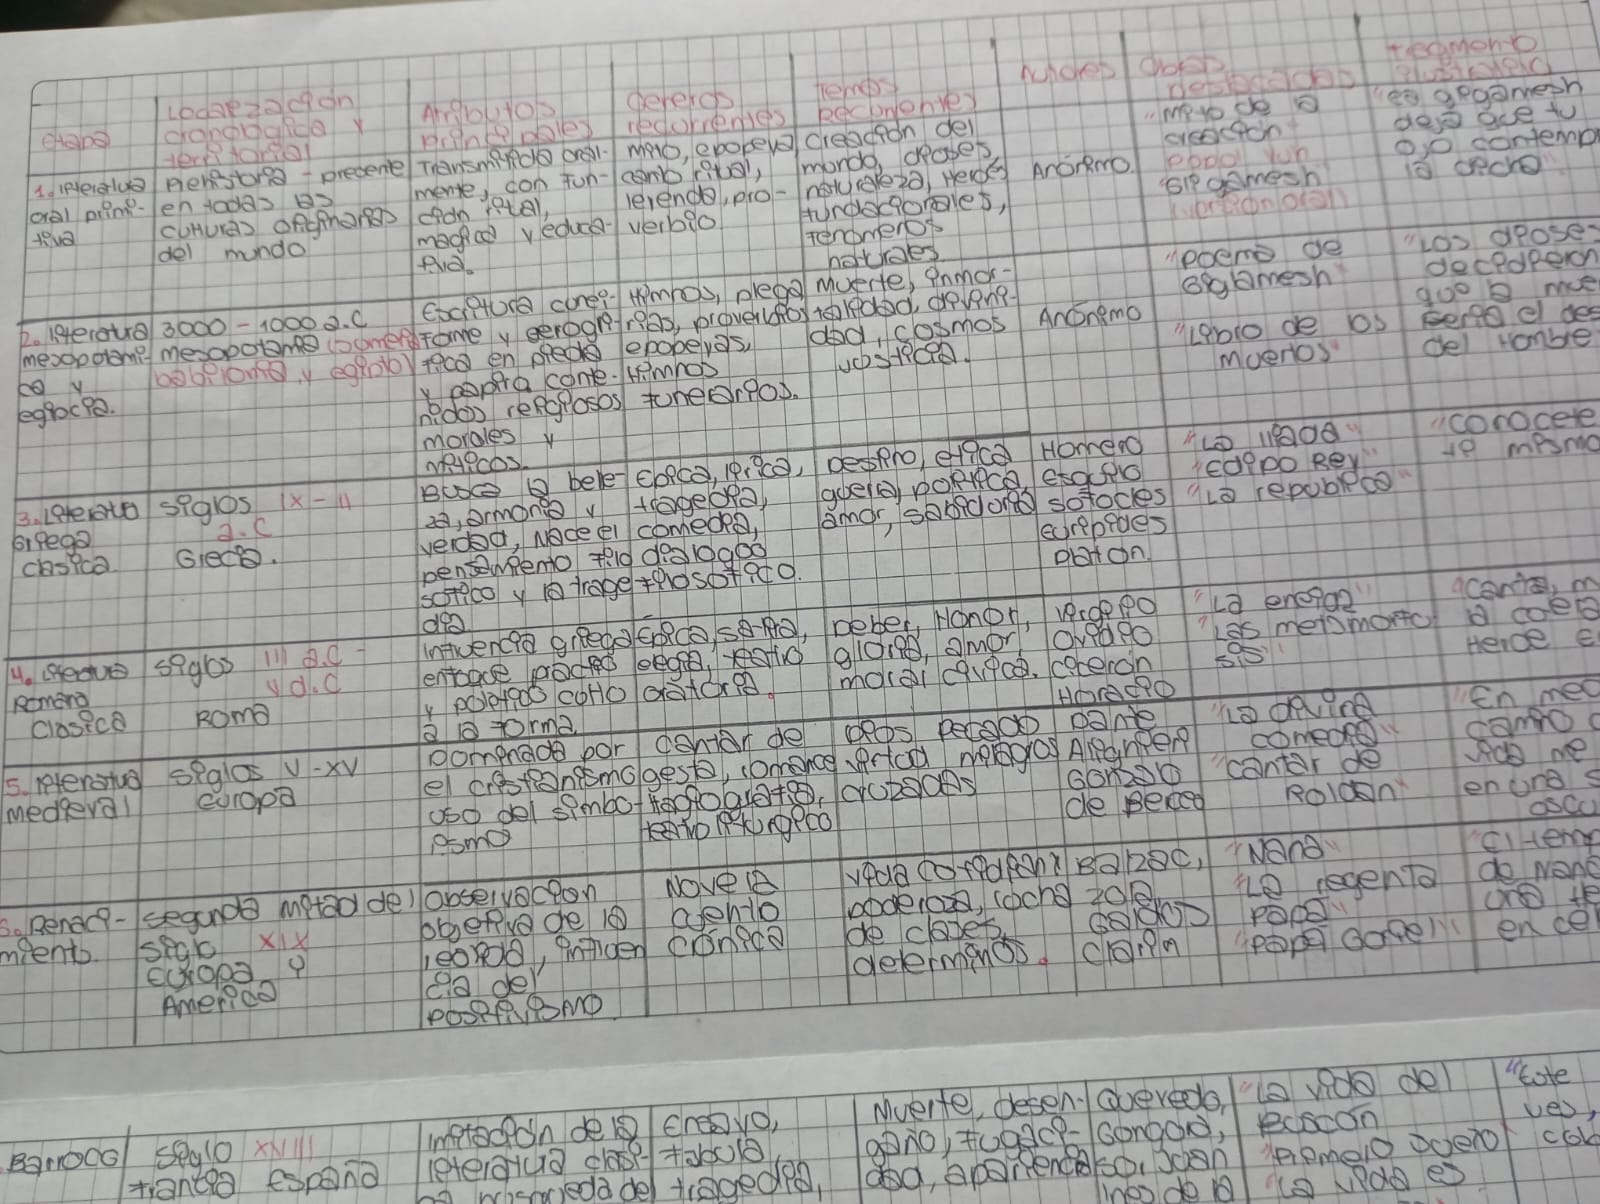 etapa
Localización
cronologica y
territorial
Atributos
principales
generos
recurrentes
temas
Recurrentes
Autores
obras
destacadas
fragmento
1. literatura
oral primi-
tiva
Prehistoria - presente
en todas las
culturas originarias
del mundo
Transmitida oral-
mente, con fun-
ción ritual,
magica y educa-
tiva.
mito, epopeya
canto ritual,
leyenda, pro-
verbio
creación del
mundo, dioses,
naturaleza, Heroes
fundacionales,
fenomenos
naturales
Anónimo.
"mito de la
creación"
popol vuh
Gilgamesh
(version oral)
deja que tu
ojo contemp
2. literatura
mesopotami-
ca y
egipcia.
3000 - 1000 a.C
Mesopotamia (sumeria
babilonia y egipto)
Escritura cunei-
forme y gerogli-
fica en piedra
y papira conte-
nidos religiosos
morales y
miticos.
Himnos, plega
rias, proverbios
epopeyas,
Himnos
funerarios.
Muerte, inmor-
talidad, divini-
dad, cosmos
justicia.
Anónimo
"poema de
Giglamesh"
"Libro de los
muertos"
"Los diose-
decidieron
que la mue
del Hombre
3. Literatu
Griega
clasica.
siglos IX - II
a.C
Grecia.
Busca la bele-
za, armonia y
verdad, Nace el
pensamiento filo
sofico y la trage-
dia
Epica, lirica,
tragedia,
comedia,
dialogo
filosofico.
Destino, etica
guerra, politica,
amor, sabiduria
Homero
esquilo
sofocles
euripides
platon.
"La iliada"
"Edipo Rey"
"La republica"
"conocete
ti mismo
4. Literatura
Romana
Clasica
siglos III a.C -
V d.C
Roma
influencia griega
enfoque practico
y politico culto
a la forma
Epica, satira,
elegia, teatro
oratoria.
Deber, Honor,
gloria, amor,
moral civica.
Virgilio
Ovidio
ciceron
Horacio
"La eneida"
"Las metamorfo
sis"
"canta, m
la colera
5. literatura
medieval
siglos V - XV
europa
Dominada por
el cristianismo
uso del simbo-
lismo
cantar de
gesta, romance
hagiografia,
teatro liturgico
Dios pecado
virtud milagros
cruzadas
Dante
Alighieri
Gonzalo
de Berceo
"La divina
comedia"
"cantar de
Roldan"
"En med
camino d
vida me
en una s
oscu
6. Renaci-
miento.
segunda mitad del
siglo XIX
europa y
America
observacion
objetiva de la
influen
cia del
positivismo
Novela
cuento
cronica
vida cotidiana
poderosa, lucha
de clases,
determinis.
Balzac,
zola
Galdos
clarin
"Nana"
"La regenta
papa"
"papa Goriel"
de Nana
Barroco
siglo XVIII
francia España
imitacion de la
literatura clasi-
Ensayo,
fabula,
tragedia,
Muerte, desen-
gaño, fugaci-
dad, apariencia
Quevedo,
Gongora,
"La vida del
Buscon
"La vida es
"Este
ves,